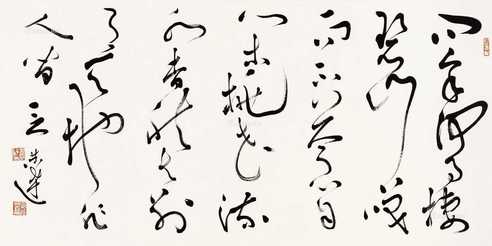 問余何事棲
碧山笑
而不答心自
閑桃花流
水杳然去別
有天地非
人間